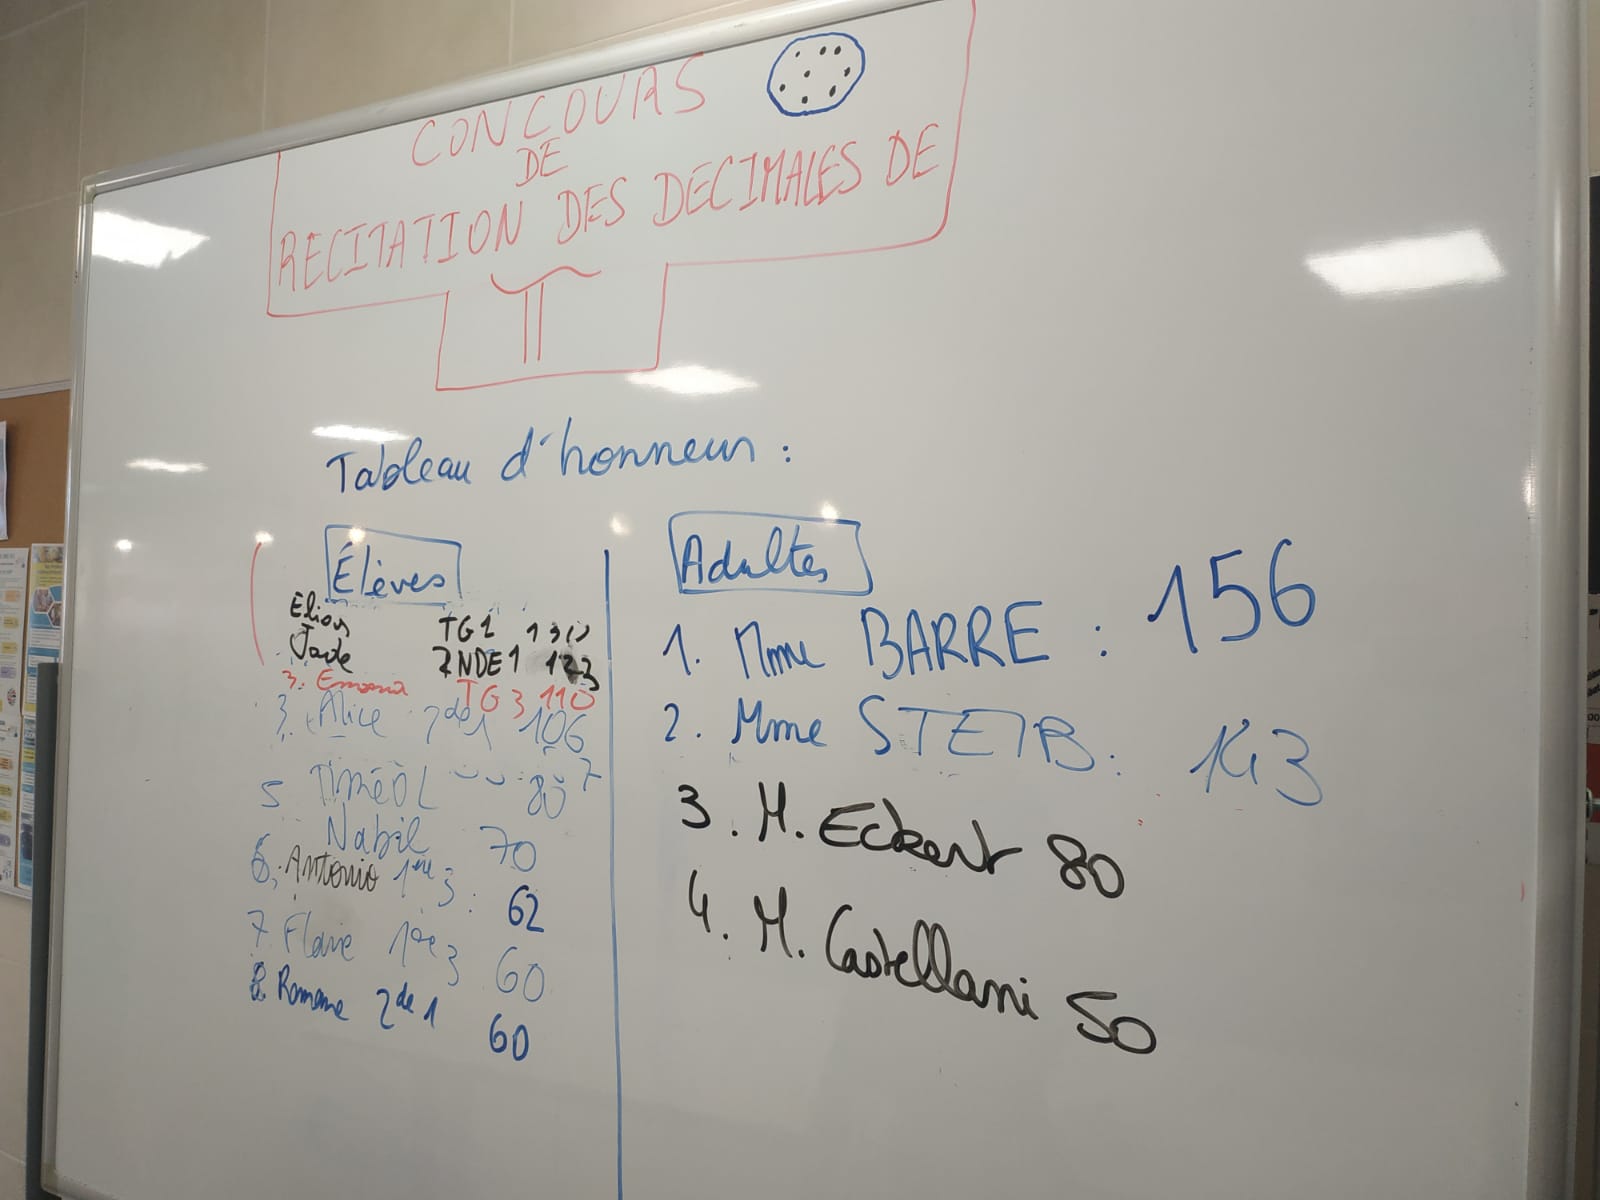 CONCOURS
DE
RECITATION DES DECIMALES DE
π
Tableau d'honneur :
Élèves
Eliott TG2 130
Jade 2NDE1 123
3. Emma TG3 110
3. Alice 2de1 106
5 TIMÉO L 80
Nabil 70
6. Antonio 1ère 3 : 62
7 Flavie 1ère 3 60
8. Romane 2de 1 60
Adultes
1. Mme BARRE : 156
2. Mme STEIB : 143
3. M. Eckert 80
4. M. Castellani 50